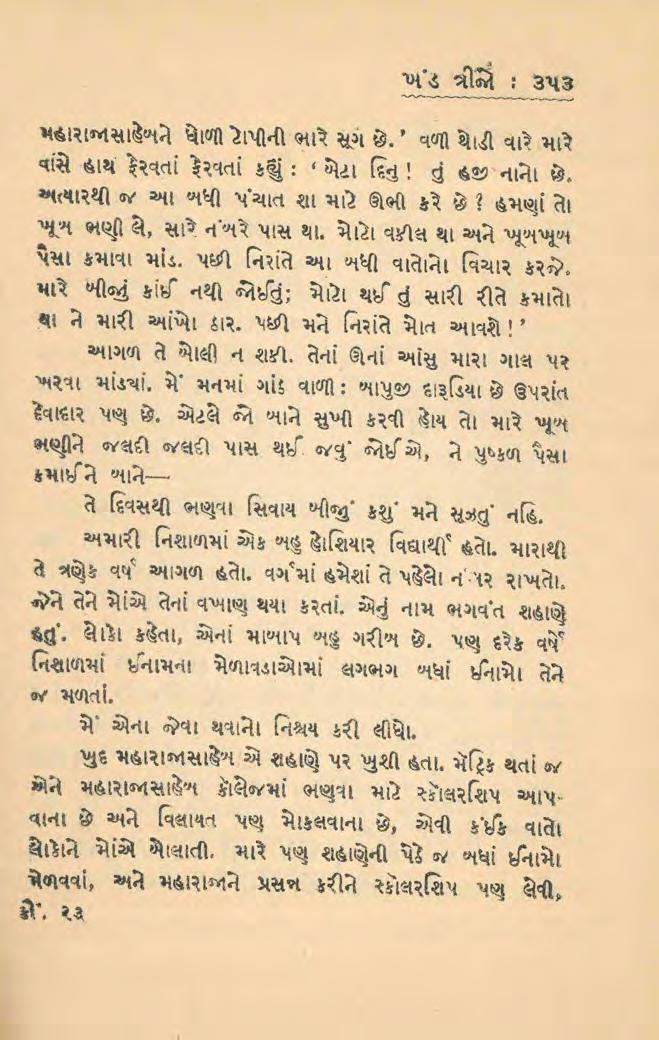 ખંડ ત્રીજો : ૩૫૩
મહારાજાસાહેબને ધોળી ટોપીની ભારે સૂગ છે.’ વળી થોડી વારે મારે
વાંસે હાથ ફેરવતાં ફેરવતાં કહ્યું : ‘બેટા દિનુ! તું હજી નાનો છે.
અત્યારથી જ આ બધી પંચાત શા માટે ઊભી કરે છે ? હમણાં તો
ખૂબ ભણી લે, સારે નંબરે પાસ થા. મોટો વકીલ થા અને ખૂબખૂબ
પૈસા કમાવા માંડ. પછી નિરાંતે આ બધી વાતોનો વિચાર કરજે.
મારે બીજું કાંઈ નથી જોઈતું; મોટો થઈ તું સારી રીતે કમાતો
થા ને મારી આંખો ઠાર. પછી મને નિરાંતે મોત આવશે!’
આગળ તે બોલી ન શકી. તેનાં ઊનાં આંસુ મારા ગાલ પર
ખરવા માંડ્યાં. મેં મનમાં ગાંઠ વાળી : બાપુજી દારૂડિયા છે ઉપરાંત
દેવાદાર પણ છે. એટલે જો બાને સુખી કરવી હોય તો મારે ખૂબ
ભણીને જલદી જલદી પાસ થઈ જવું જોઈએ, ને પુષ્કળ પૈસા
કમાઈને બાને—
તે દિવસથી ભણવા સિવાય બીજું કશું મને સૂઝતું નહિ.
અમારી નિશાળમાં એક બહુ હોશિયાર વિદ્યાર્થી હતો. મારાથી
તે ત્રણેક વર્ષ આગળ હતો. વર્ગમાં હમેશાં તે પહેલો નંબર રાખતો.
જેને તેને મોંએ તેનાં વખાણ થયા કરતાં. એનું નામ ભગવંત શહાણે
હતું. લોકો કહેતા, એનાં માબાપ બહુ ગરીબ છે. પણ દરેક વર્ષે
નિશાળમાં ઈનામના મેળાવડાઓમાં લગભગ બધાં ઈનામો તેને
જ મળતાં.
મેં એના જેવા થવાનો નિશ્ચય કરી લીધો.
ખુદ મહારાજાસાહેબ એ શહાણે પર ખુશી હતા. મૅટ્રિક થતાં જ
એને મહારાજાસાહેબ કૉલેજમાં ભણવા માટે સ્કૉલરશિપ આપ-
વાના છે અને વિલાયત પણ મોકલવાના છે, એવી કંઈક વાતો
લોકોને મોંએ બોલાતી. મારે પણ શહાણેની પેઠે જ બધાં ઈનામો
મેળવવાં, અને મહારાજાને પ્રસન્ન કરીને સ્કૉલરશિપ પણ લેવી,
ક્રૌં. ૨૩